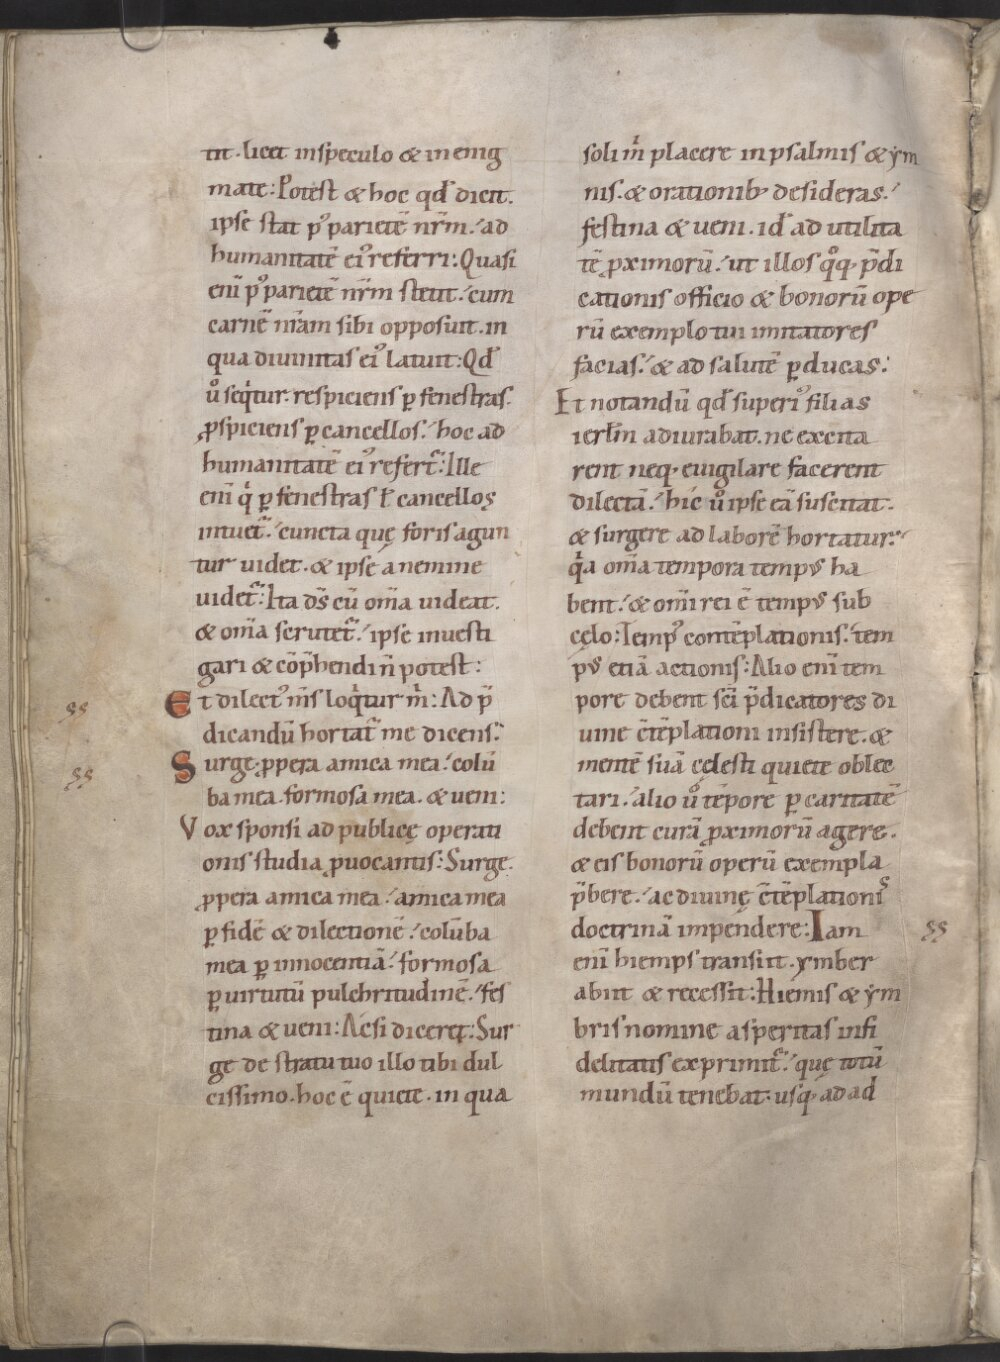 tit. licet in speculo & in enig
mate: Potest & hoc qd̄ dicit.
ipse stat pꝰ parietē nr̄m. ad
humanitatē eiꝰ referri: Quasi
eni pꝰ parietē nr̄m stetit. cum
carnē nr̄am sibi opposuit. in
qua diuinitas eiꝰ latuit: Qd̄
u̾ seqͥtur. respiciens ꝑ fenestras.
ꝓspiciens ꝑ cancellos. hoc ad
humanitatē eiꝰ refert᷑: Ille
eni qͥ ꝑ fenestras ł cancellos
intuet᷑. cuncta quę foris agun
tur uidet. & ipse a nemine
uidet᷑: Ita d̄s cū om̄a uideat.
& om̄a scrutet᷑. ipse inuesti
gari & cōp̄hendi n̄ potest:
Et dilectꝰ m̄s loqͥtur mͥ: Ad p̄
dicandū hortat᷑ me dicens:
Surge. ꝓpera amica mea. colū
ba mea. formosa mea. & ueni:
Vox sponsi ad publicę operati
onis studia ꝓuocantis: Surge.
ꝓpera amica mea. amica mea
ꝑ fidē & dilectionē. colūba
mea ꝑ innocentiā. formosa
ꝑ uirtutū pulchritudinē. fes
tina & ueni: Ac si diceret: Sur
ge de stratu tuo illo tibi dul
cissimo. hoc ē quiete. in qua
soli mͥ placere in psalmis & ẏm
nis. & orationib; desideras.
festina & ueni. id̄ ad utilita
tē ꝓximorū. ut illos qͦq; p̄di
cationis officio & bonorū ope
rū exemplo tui imitatores
facias. & ad salutē ꝑducas:
Et notandū qd̄ superiꝰ filias
ierłm adiurabat. ne excita
rent neq; euigilare facerent
dilectā. hic u̾ ipse eā suscitat.
& surgere ad laborē hortatur:
qͥa om̄a tempora tempꝰ ha
bent. & om̄i rei ē tempꝰ sub
cęlo: Tempꝰ contēplationis. tem
pꝰ etiā actionis: Alio eni tem
pore debent sc̄i p̄dicatores di
uine c̄tēplationi insistere. &
mentē suā cęlesti quiete oblec
tari. alio u̾ tēpore ꝑ caritatē
debent curā ꝓximorū agere.
& eis bonorū operū exempla
p̄bere. ac diuinę c̄tēplationis
doctrinā impendere: Iam
eni hiemps transiit. ymber
abiit & recessit: Hiemis & ẏm
bris nomine asperitas infi
delitatis exprimit᷑. quę totū
mundū tenebat. usq; ad ad
ss
ss
ss